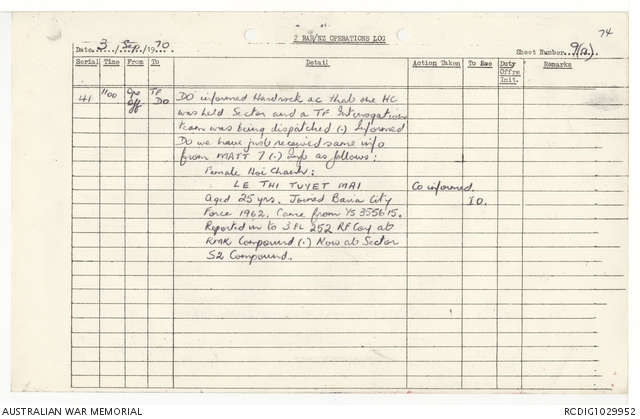 74
2 RAR/NZ OPERATIONS LOG
Date 3 / Sep / 1970
Sheet Number 9(a).
Serial Time From To Detail Action Taken To See Duty Offrs Init. Remarks
41 1100 Ops Off TF DO DO informed Hardrock ac that one HC
was held Sector and a TF Interrogation
team was being dispatched (.) Informed
DO we have just received same info
from MATT 7 (.) Info as follows:
Female Hoi Chanh:
LE THI TUYET MAI Co informed.
Aged 25 yrs. Joined Baria City I.O.
Force 1962. Came from YS 355615.
Reported in to 3 PL 252 RF Coy at
RMK Compound (.) Now at Sector
S2 Compound.
AUSTRALIAN WAR MEMORIAL
RCDIG1029952